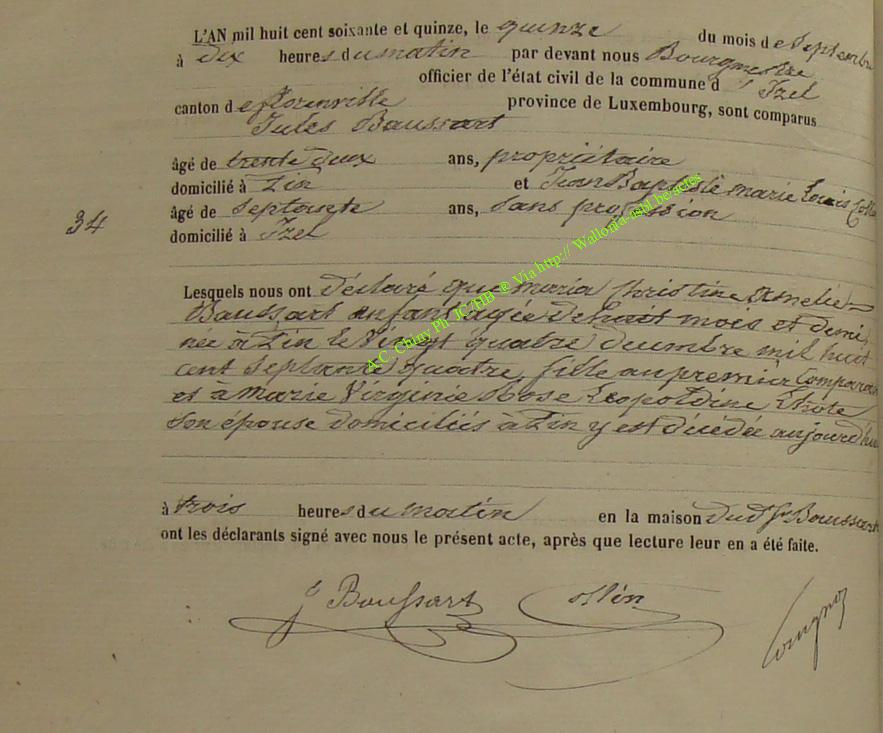 L'AN mil huit cent soixante et quinze, le quinze du mois de Septembre
à dix heures du matin par devant nous Bourgmestre
officier de l'état civil de la commune d' Izel
canton de florenville province de Luxembourg, sont comparus
Jules Baussart
âgé de trente deux ans, propriétaire
domicilié à Pin et Jean Baptiste marie Louis
34 âgé de septante ans, sans profession
domicilié à Izel
Lesquels nous ont déclaré que maria Christine Amelie
Baussart enfant agée de huit mois et demi
née à Pin le Vingt quatre decembre mil huit
cent septante quatre, fille au premier Comparant
et à Marie Virginie Rose Léopoldine
son épouse domiciliés à Pin y est décédée aujourd'hui
à trois heures du matin en la maison dud. Sr Baussart
ont les déclarants signé avec nous le présent acte, après que lecture leur en a été faite.
J Baussart
A.C. Chiny Ph. JC/HB @ Via http:// Wallonia-asbl.be/actes